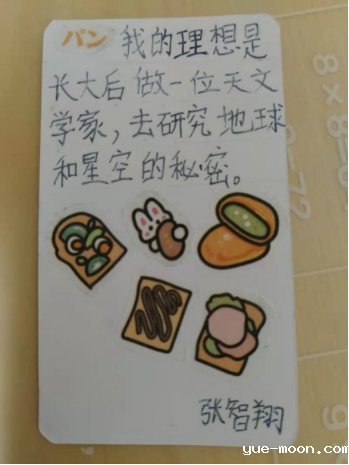 パン 我的理想是
长大后做一位天文
学家，去研究地球
和星空的秘密。
张智翔
8×8=
yue-moon.com